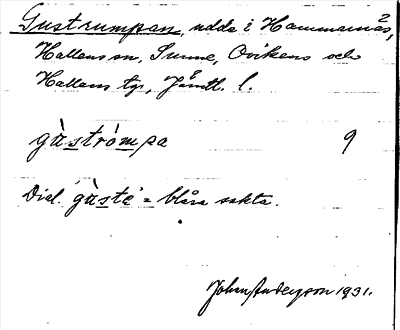 Gustrumpan, udde i Hammarnäs,
Hallens sn, Sunne, Ovikens och
Hallens tg, Jämtl. l.
gùstròmpa 9
Dial. gùste = blåsa sakta.
Johan Anderzon 1931.